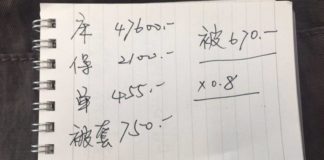 床 47600.-
保 2100.-
单 455.-
被套 750.-
被 670.-
x0.8